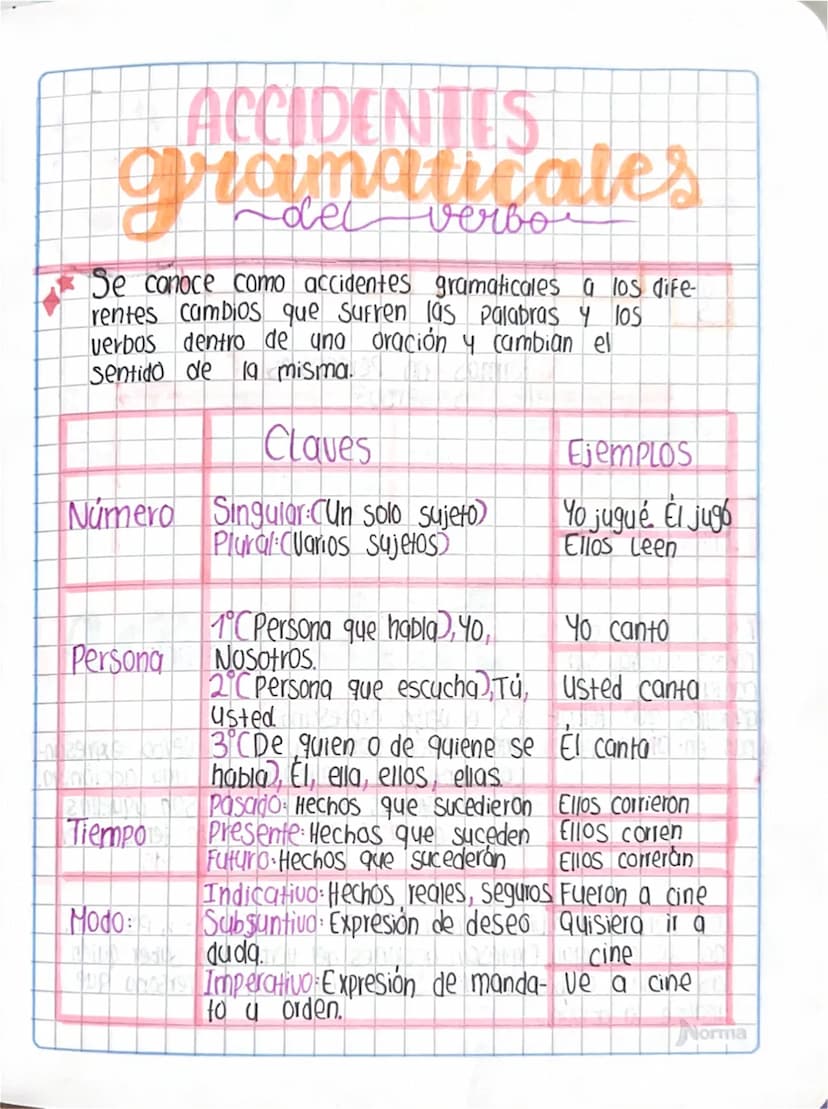 ACCIDENTES
gramaticales
del verbo
Se conoce como accidentes gramaticales a los dife-
rentes cambios que sufren las palabras y los
verbos dentro de una oración y cambian el
sentido de la misma.
Claves
Ejemplos
Número
Singular:(Un solo sujeto)
Yo jugué. Él jugó
Plural:(Varios sujetos)
Ellos Leen
Persona
1°(Persona que habla), Yo,
Nosotros.
Yo canto
2°(Persona que escucha),Tú,
usted
Usted canta
3°(De quien o de quiene se
habla), Él, ella, ellos, ellas.
Él canta
Tiempo
Pasado: Hechos que sucedieron
Ellos corrieron
Presente: Hechos que suceden
Ellos corren
Futuro: Hechos que sucederán
Ellos correrán
Modo:
Indicativo: Hechos reales, seguros
Fueron a cine
Subjuntivo: Expresión de deseo
duda.
Quisiera ir a
cine
Imperativo: Expresión de manda-
to u orden.
Ve a cine
Norma